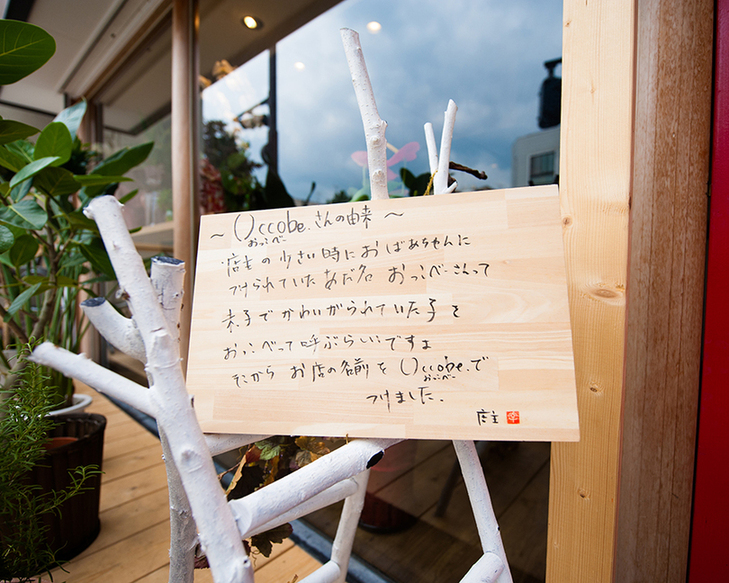 ～ Occobe.さんの由来 ～
おっこべー
店主の小さい時におばあちゃんに
つけられていたあだ名 おっこべーさんって
末子でかわいがられていた子を
おっこべって呼ぶらしいですよ
だから お店の名前を Occobe.で
おっこべー
つけました.
店主 幸